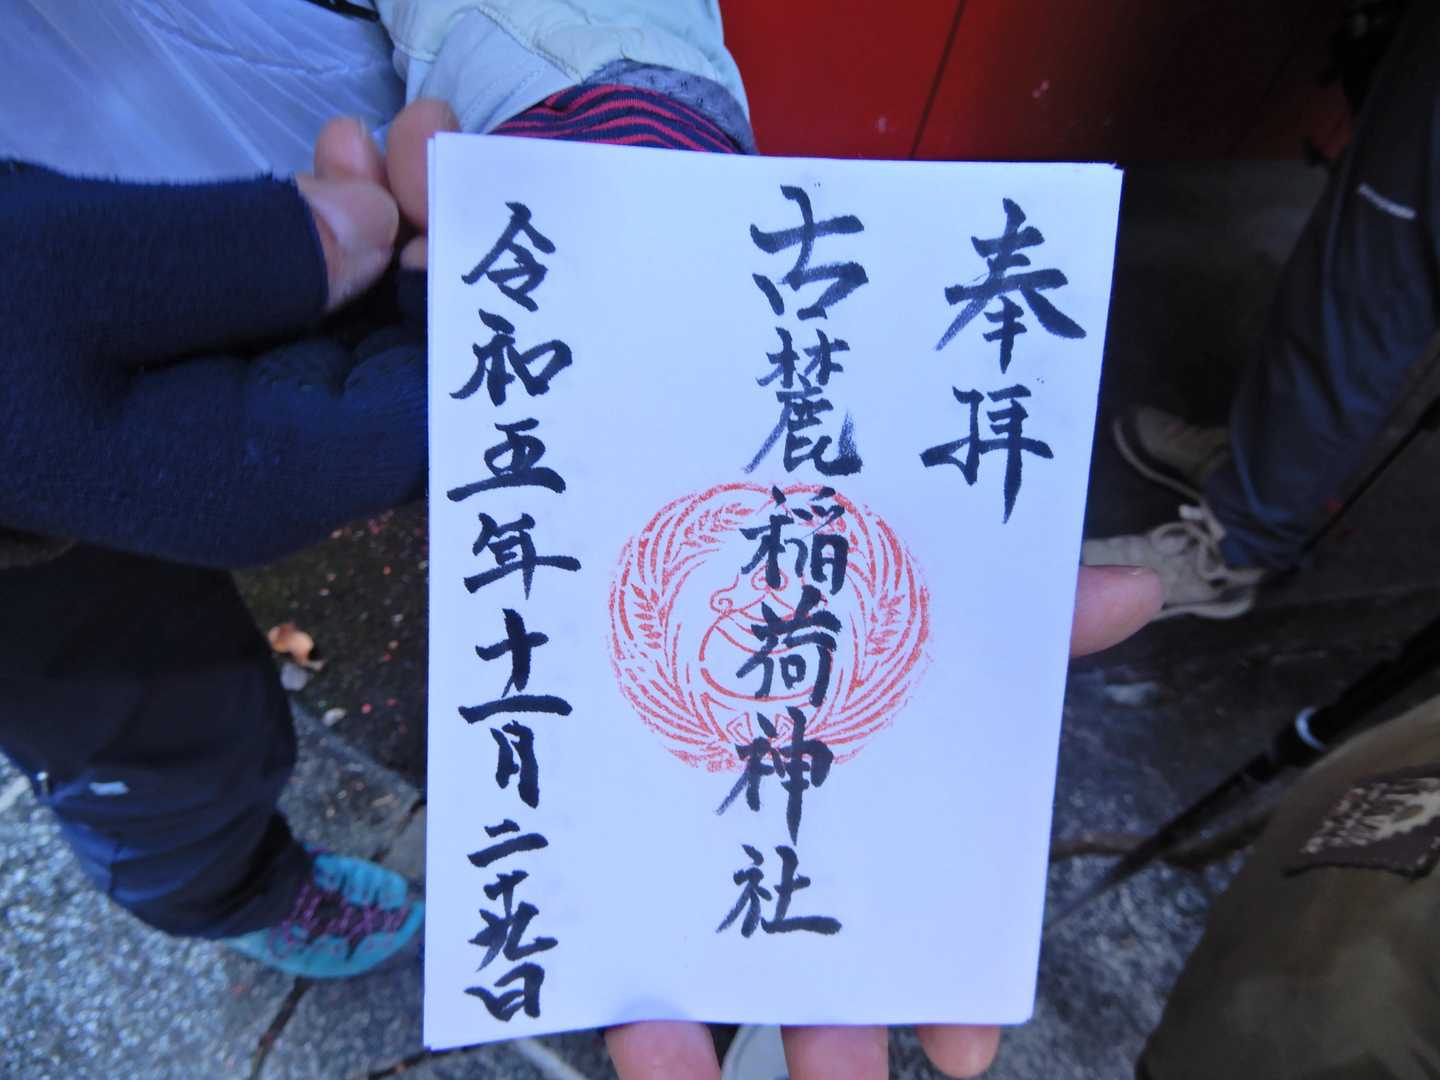 奉拝
古麓稲荷神社
令和五年十一月二十九日